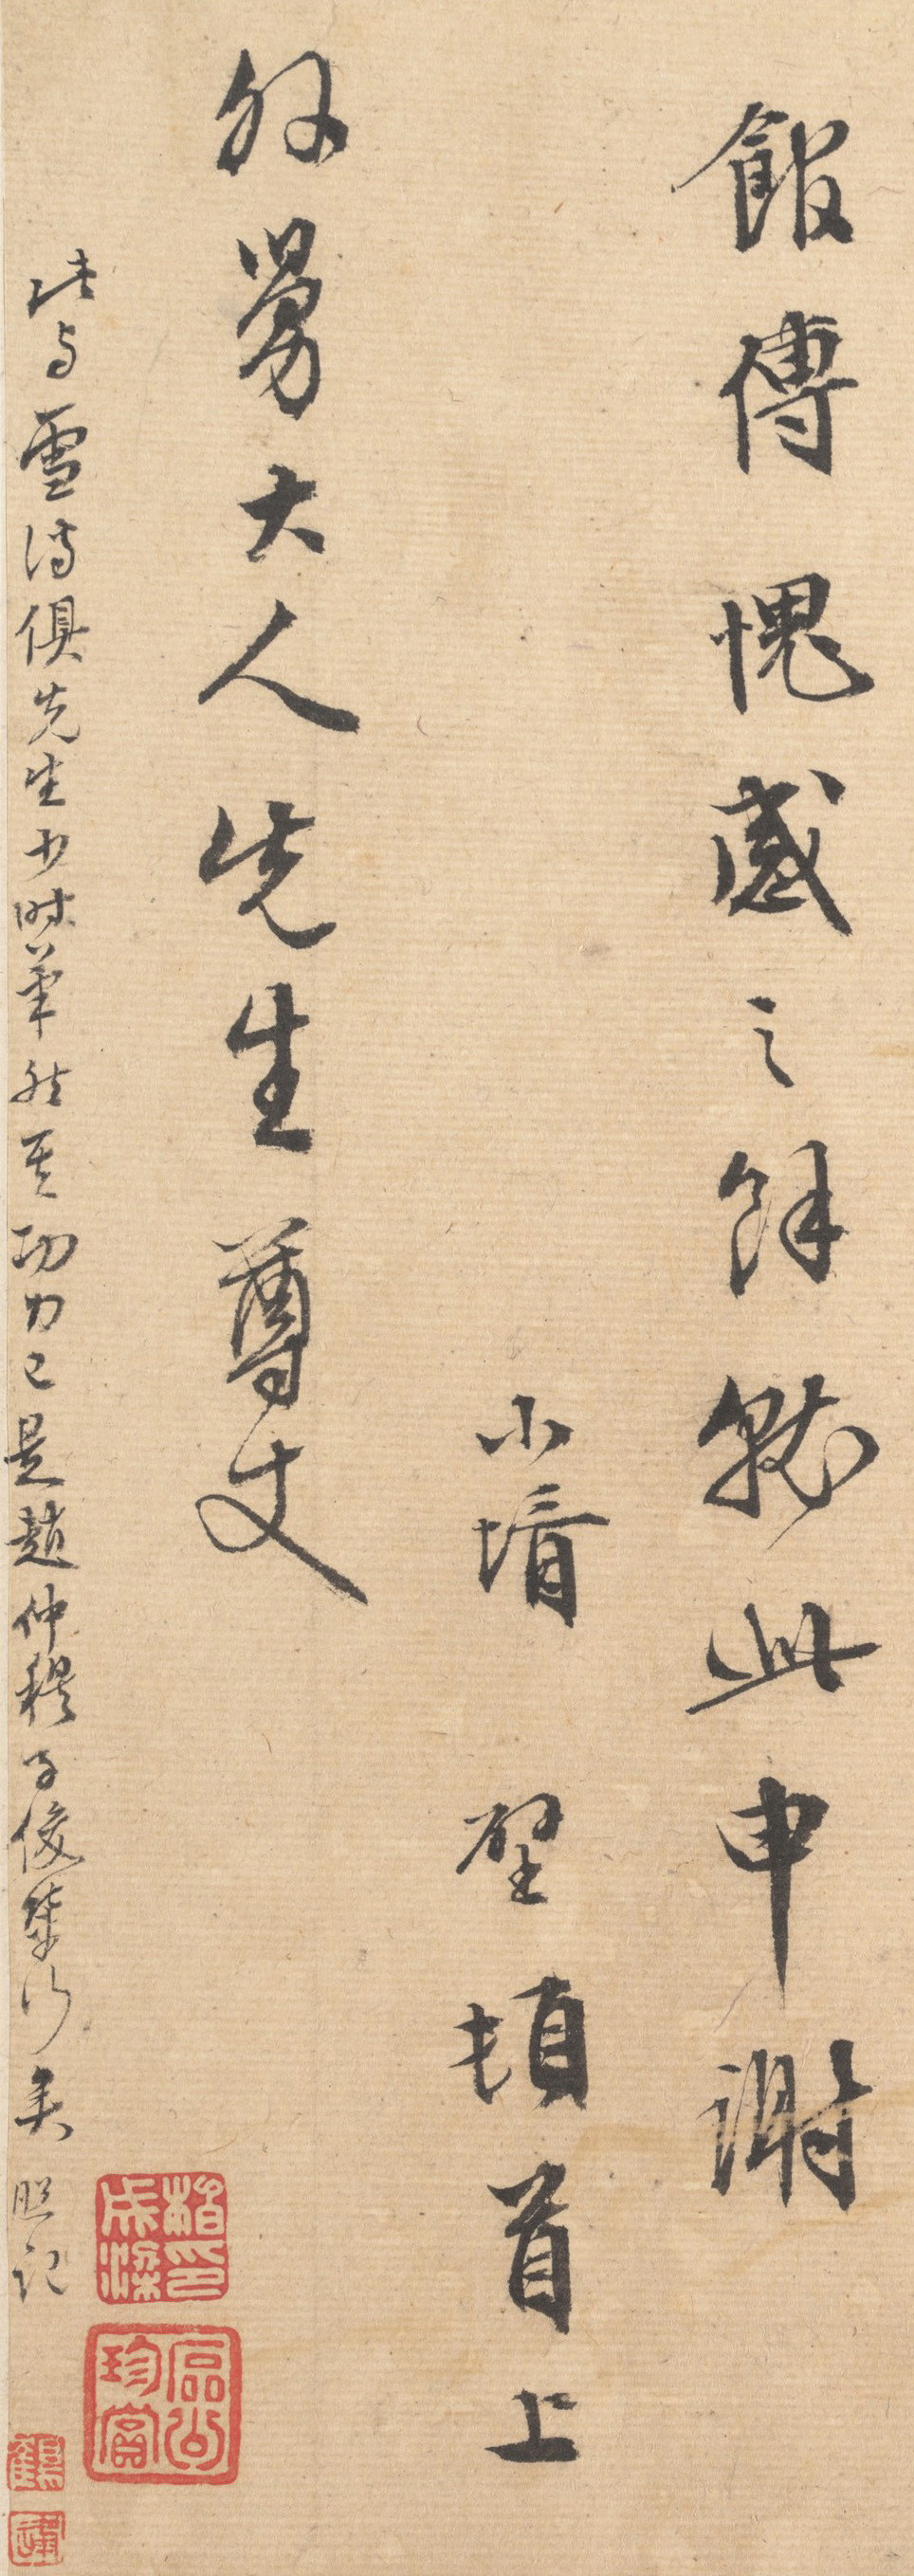 館傳愧感之餘就此申謝
小壻 壁頓首上
外舅大人先生尊丈
此与雪詩俱先生少時筆然其功力已是趙仲穆子俊輩行矣 照記